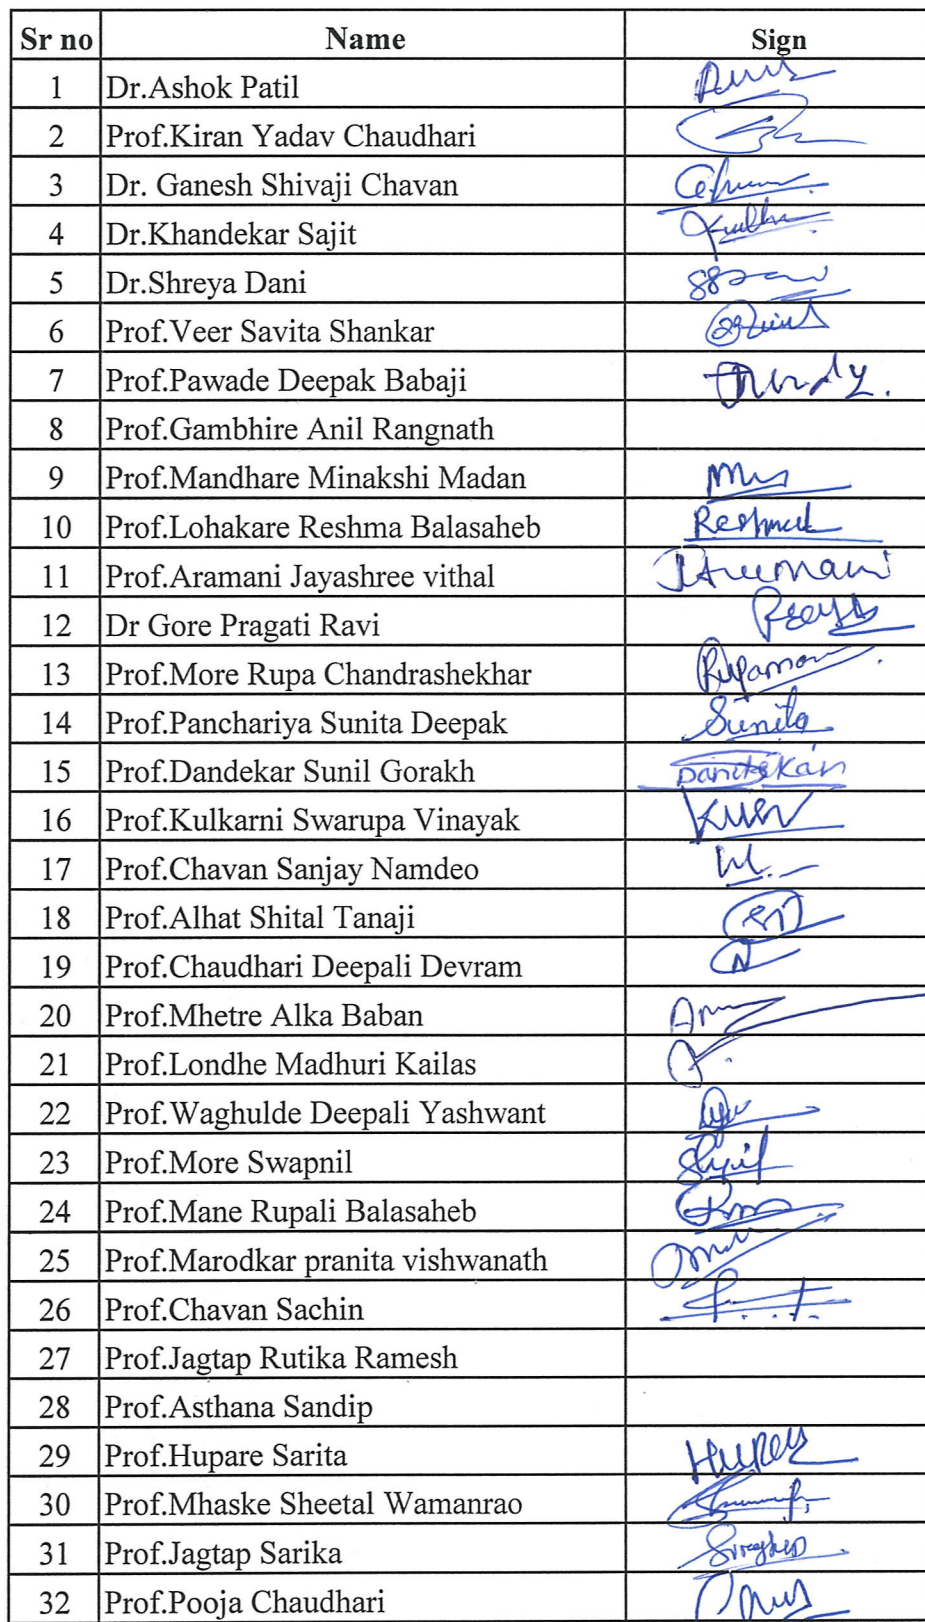 Sr no Name Sign
1 Dr.Ashok Patil
2 Prof.Kiran Yadav Chaudhari
3 Dr. Ganesh Shivaji Chavan
4 Dr.Khandekar Sajit
5 Dr.Shreya Dani
6 Prof.Veer Savita Shankar
7 Prof.Pawade Deepak Babaji
8 Prof.Gambhire Anil Rangnath
9 Prof.Mandhare Minakshi Madan
10 Prof.Lohakare Reshma Balasaheb
11 Prof.Aramani Jayashree vithal
12 Dr Gore Pragati Ravi
13 Prof.More Rupa Chandrashekhar
14 Prof.Panchariya Sunita Deepak Sunita
15 Prof.Dandekar Sunil Gorakh
16 Prof.Kulkarni Swarupa Vinayak
17 Prof.Chavan Sanjay Namdeo
18 Prof.Alhat Shital Tanaji
19 Prof.Chaudhari Deepali Devram
20 Prof.Mhetre Alka Baban
21 Prof.Londhe Madhuri Kailas
22 Prof.Waghulde Deepali Yashwant
23 Prof.More Swapnil
24 Prof.Mane Rupali Balasaheb
25 Prof.Marodkar pranita vishwanath
26 Prof.Chavan Sachin
27 Prof.Jagtap Rutika Ramesh
28 Prof.Asthana Sandip
29 Prof.Hupare Sarita
30 Prof.Mhaske Sheetal Wamanrao
31 Prof.Jagtap Sarika
32 Prof.Pooja Chaudhari